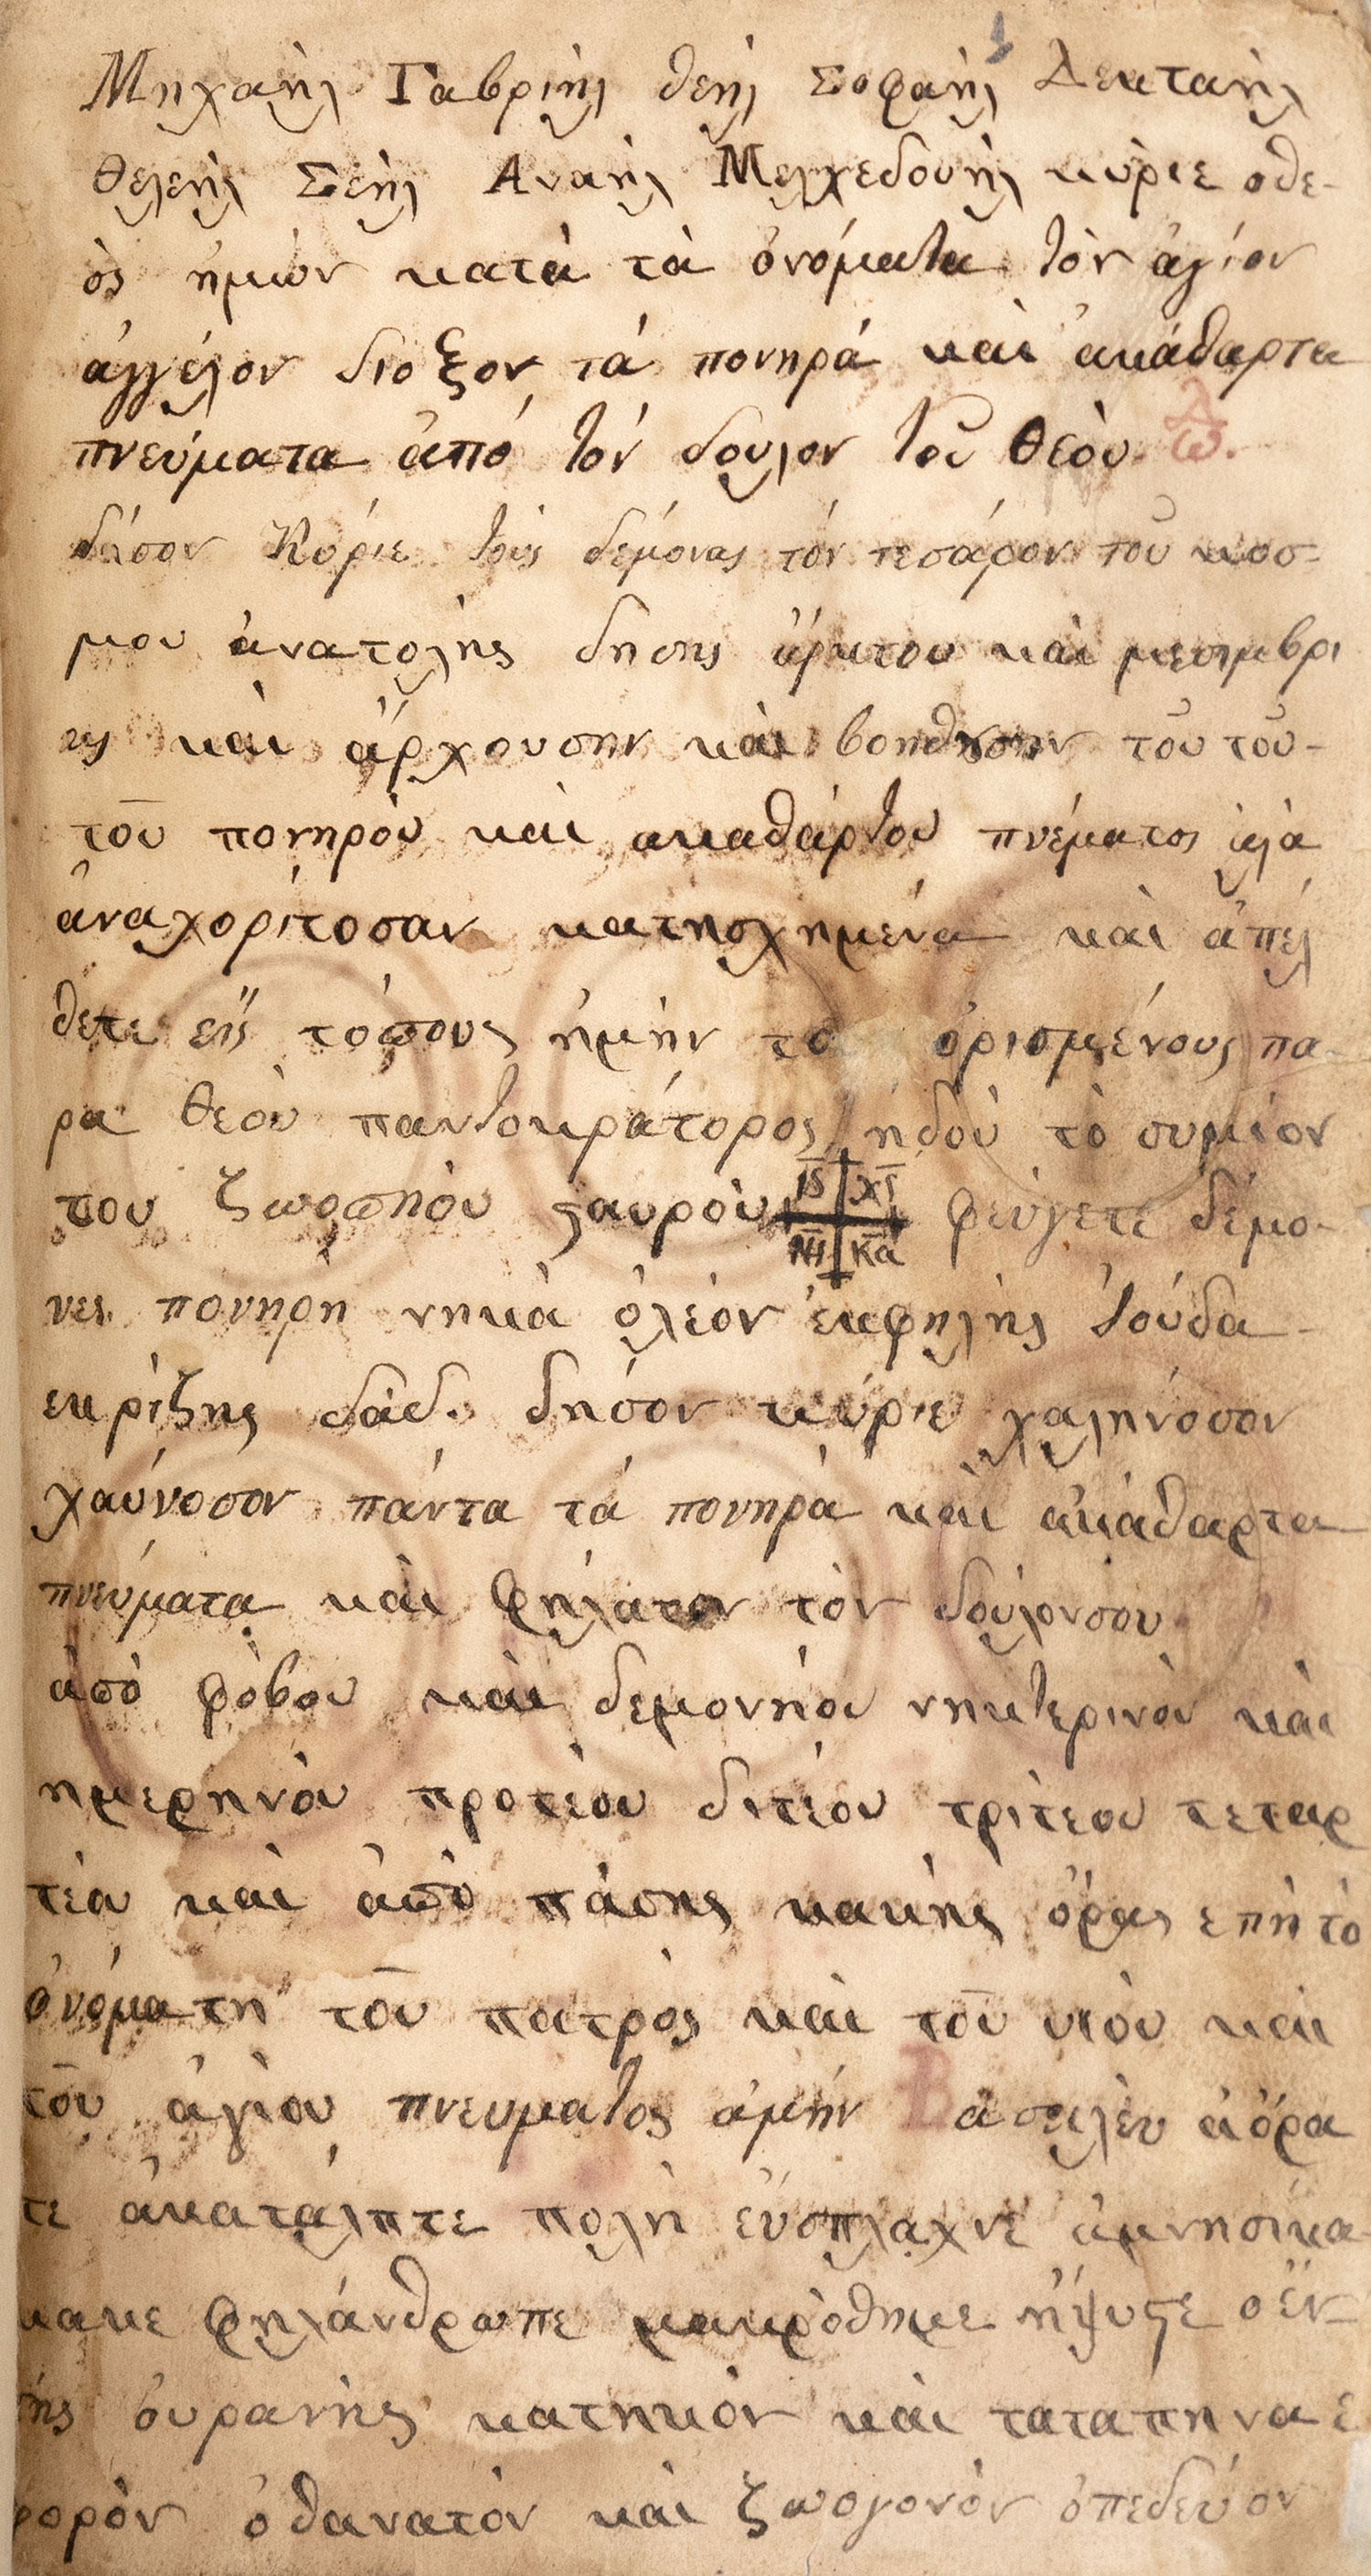 Μηχαὴλ Γαβριὴλ θεὴλ Σοφαὴλ Δεκταὴλ
θελεὴλ Σεὴλ Αναὴλ Μελχεδουὴλ κύριε οθε-
ὸς ἡμὼν κατὰ τὰ ὀνόματα τὸν ἁγίον
ἀγγέλον διοξον τά πονηρά καὶ ἀκάθαρτα
πνεύματα ἀπό τόν δουλον τοῦ θεὸυ
δάσον Κύριε τοὺς δεμόνας τόν τεσάρον τοῦ κοσ-
μου ἀνατολὴς δησης ἄρκτου καὶ μεσημβρι
νης καὶ ἄρχουσην καὶ βοηθησην τοῦ τοῦ-
τοῦ πονηρὸυ καὶ ακαθάρτου πνέματος ἀλὰ
ἀναχορίτοσαν κατησχημένα καὶ ἀπελ
θετε εἰς τόπους ἡμὴν το ὁρισμένους πα-
ρα θεὸυ παντοκράτορος ἠδοὺ τὸ συμίον
του ζωοπηὸυ ϛαυρὸυ ΙΣ ΧΣ ΝΗ ΚΑ φεύγετε δέμο-
νες πονηρη νηκὰ ὁλέον ἐκφηλὴς Ἰούδα
εκρίζης δάδ. δησον κύριε χαληνόσον
χαύνοσον πάντα τά πονηρὰ καὶ ακάθαρτα
πνεύματα καὶ φηλατον τὸν δούλονσου
ἀπὸ φόβου καὶ δεμονήου νηκτερινὸυ καὶ
ημερηνὸυ προτέου διτέου τρίτεου τεταρ
τέου καὶ ἀπὸ πάσης κακὴς ὅρας επὴ τὸ
ὀνόματη τοῦ πατρὸς καὶ τοῦ υιὸυ καὶ
τοῦ ἁγίου πνευματος ἀμὴν Βασιλὲυ ἀόρα
τε ἀκατάλπτε πολὴ εὔσπλαχνε ἀμνησίκα
κακε φηλάνθρωπε μακρόθημε ἤψυϛε ὁἐν
τῆς ὀυρανὴς κατηκὸν καὶ ταταπηνα ε
φορὸν ὁθανατὸν καὶ ζωογονὸν ὁπεδεύον